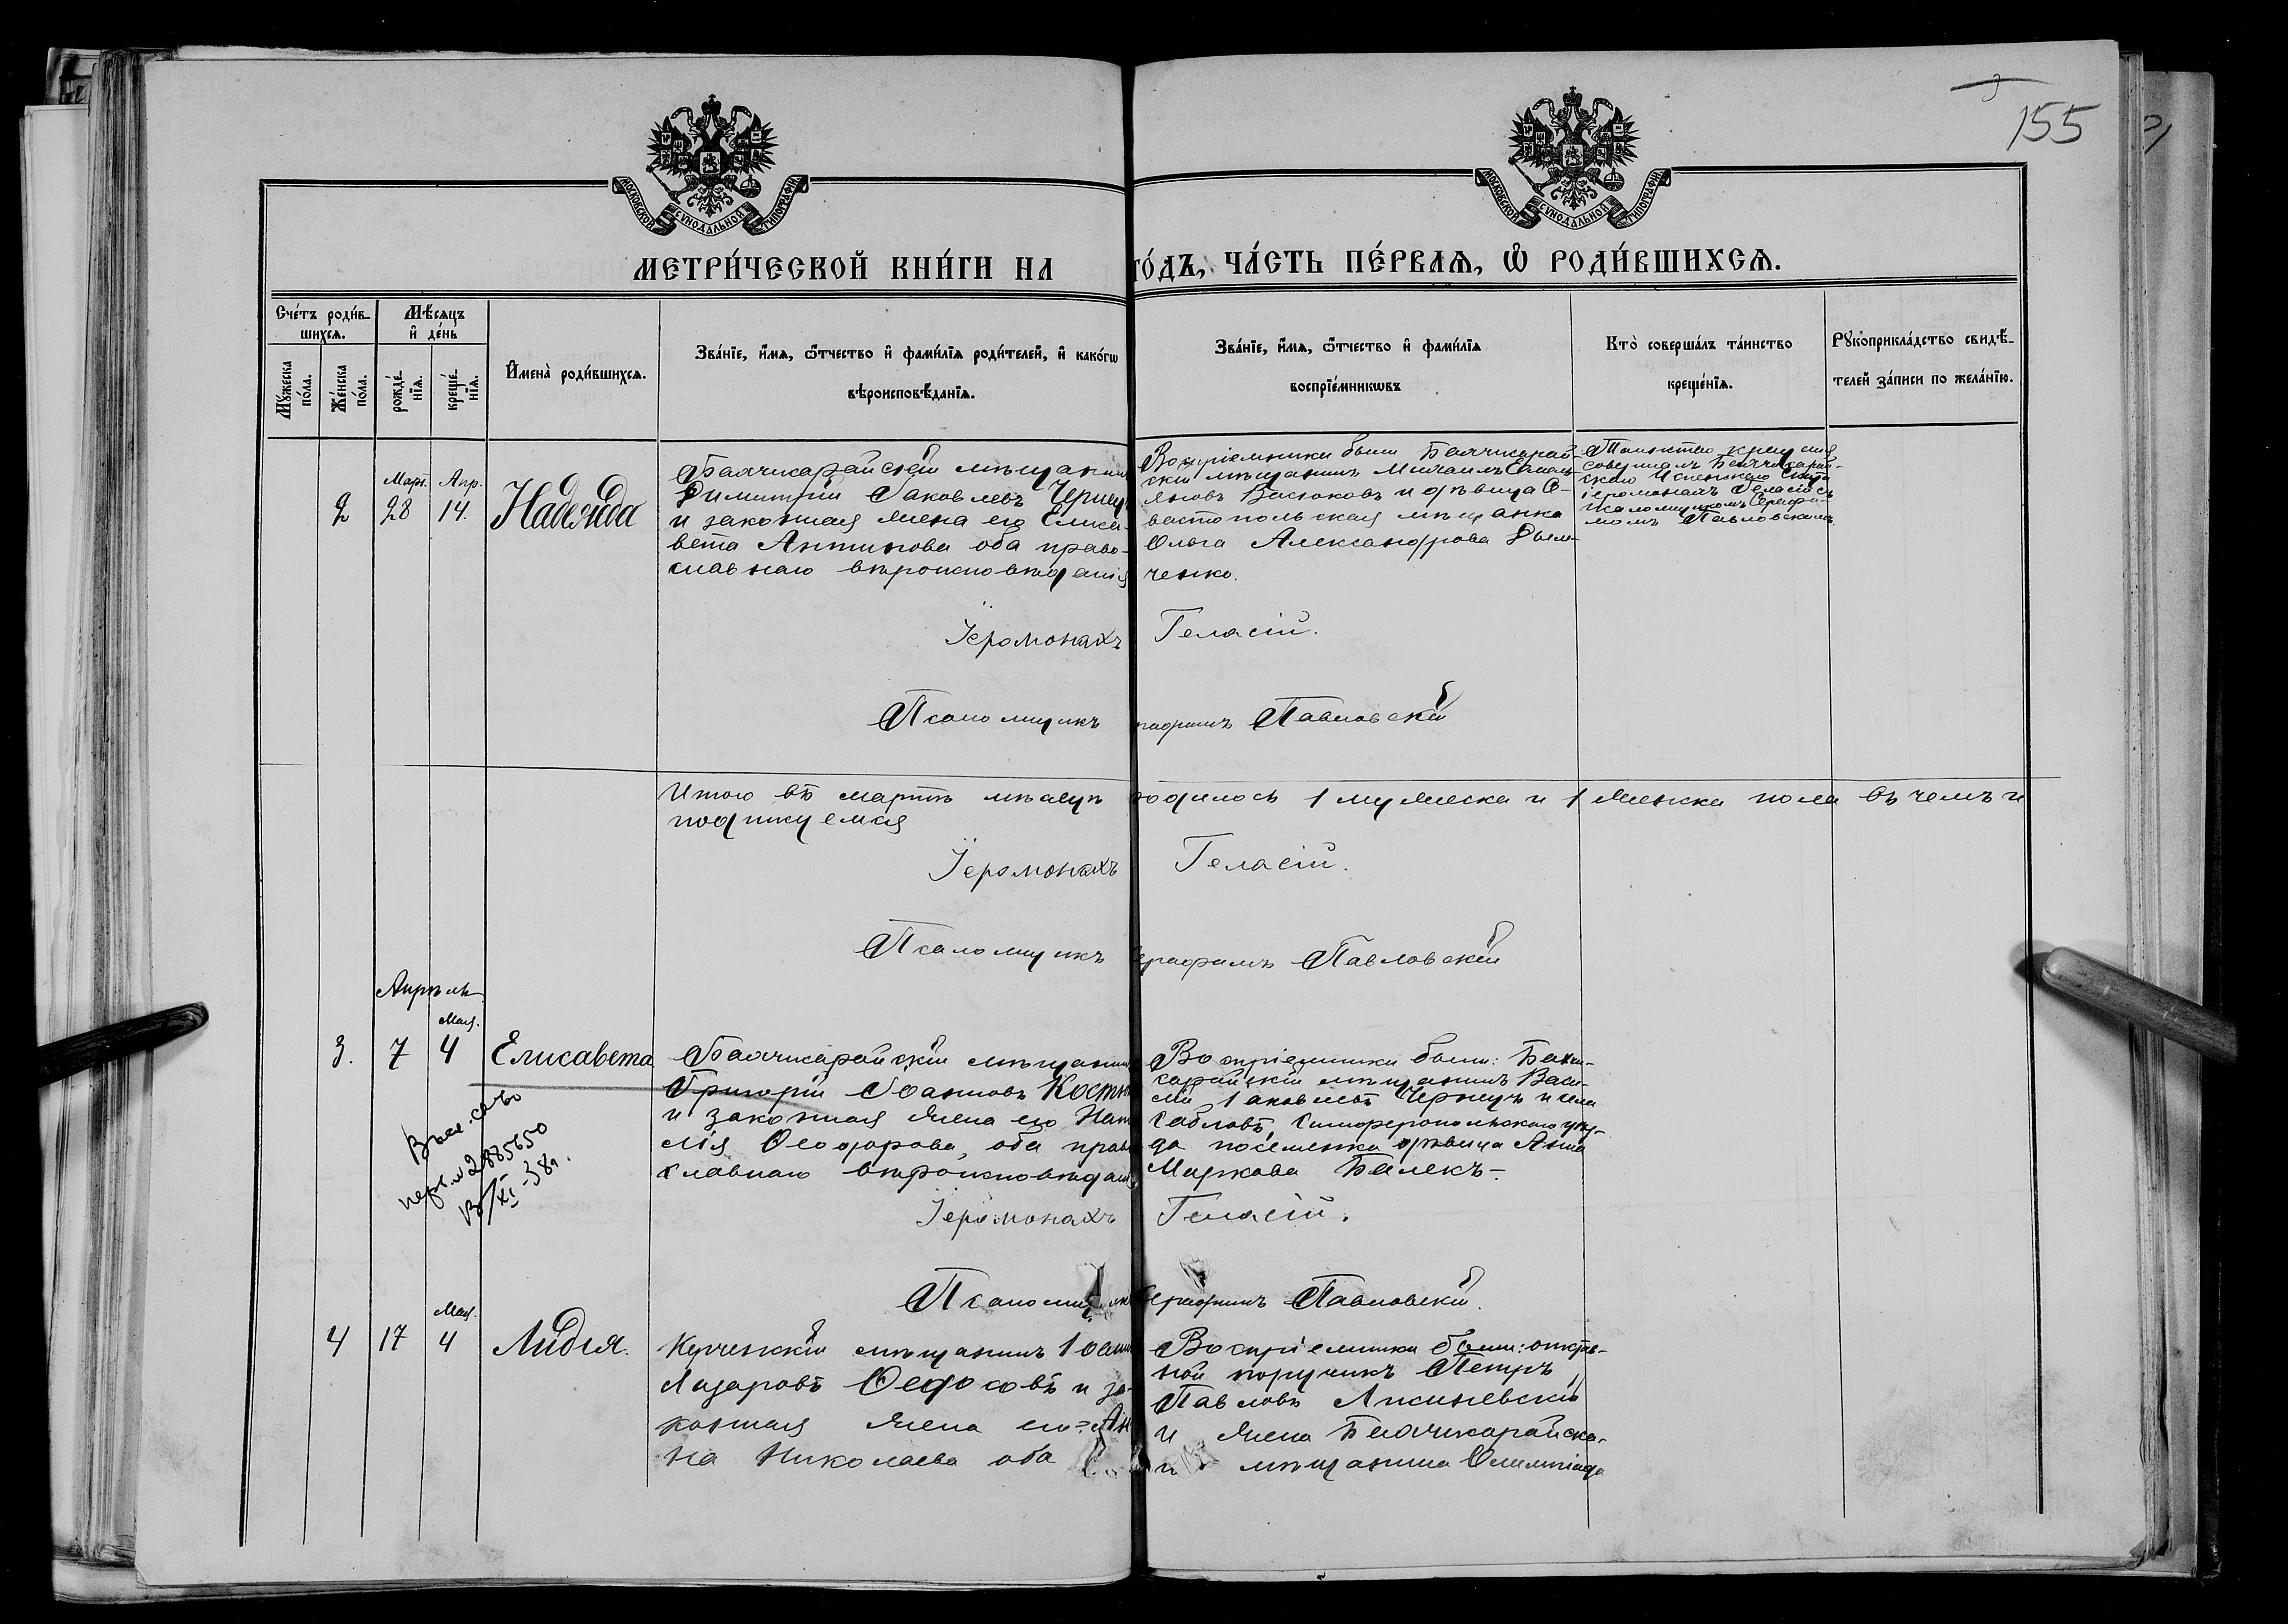 155
МОСКОВСКОЙ СУНОДАЛЬНОЙ ТИПОГРАФІИ
МОСКОВСКОЙ СУНОДАЛЬНОЙ ТИПОГРАФІИ
МЕТРИ́ЧЕСКОЙ КНИ́ГИ НА ГО́ДЪ, ЧА́СТЬ ПЕ́РВАѦ, Ѡ҆ РОДИ́ВШИХСѦ.
Сче́тъ роди́в-
шихсѧ.
Мꙋ́жеска
по́ла.
Же́нска
по́ла.
Мѣ́сѧцъ
и҆ де́нь
рожде́-
нїѧ.
креще́-
нїѧ.
И҆мена̀ роди́вшихсѧ.
Зва́нїе, и҆́мѧ, ѻ҆́тчество и҆ фами́лїѧ роди́телей, и҆ како́гѡ
вѣроисповѣ́данїѧ.
Зва́нїе, и҆́мѧ, ѻ҆́тчество и҆ фами́лїѧ
воспрїе́мникѡвъ
Кто̀ соверша́лъ та́инство
креще́нїѧ.
Рꙋкоприкла́дство свидѣ́-
телей за́писи по жела́нїю.
Март. Апр.
2 28 14. Надежда
Бахчисарайскій мѣщанин
Димитрій Іаковлевъ Чернец
и законная жена его Елиса-
вета Антипова оба право-
славнаго вѣроисповѣданія
Воспріемники были Бахчисарай-
скій мѣщанинъ Михаилъ
Васюковъ и дѣвица Се-
вастопольская мѣщанка
Ольга Александрова Дьям-
ченко.
Таинство крещенія
совершалъ Бахчисарай-
скаго Успенскаго Скита
іеромонахъ Геласій съ
псаломщикомъ Серафи-
момъ Павловскимъ
Іеромонахъ Геласій.
Псаломщикъ ерафимъ Павловскій
Итого въ мартѣ мѣсяцѣ родилось 1 мужеска и 1 женска пола въ чемъ и
подписуемся
Іеромонахъ Геласій.
Псаломщикъ ерафимъ Павловскій
Апрѣль
Мая.
3. 7 4 Елисавета
Бахчисарайскій мѣщанин
Григорій Іоанновъ Костю
и законная жена его Ната
лія Ѳеодорова, оба право
славнаго вѣроисповѣдан
Воспріемники были: Бахчи-
сарайскій мѣщанинъ Васи-
лій Іаковлевъ Чернецъ и села
Сабловъ, Симферопольскаго уѣз-
да поселянка дѣвица Анна
Маркова Балекъ.
Выд. св-во
№ 2885650
13/XI-38г.
Іеромонахъ Геласій.
Псаломщик ерафимъ Павловскій.
Мая.
4 17 4 Лидія.
Керченскій мѣщанинъ Іоанн
Лазаровъ Ѳедосовъ и за-
конная жена его Ан
на Николаева оба
Воспріемники были: отстав-
ной поручикъ Петръ
Павловъ
и жена Бахчисарайска-
мѣщанина Олимпіада